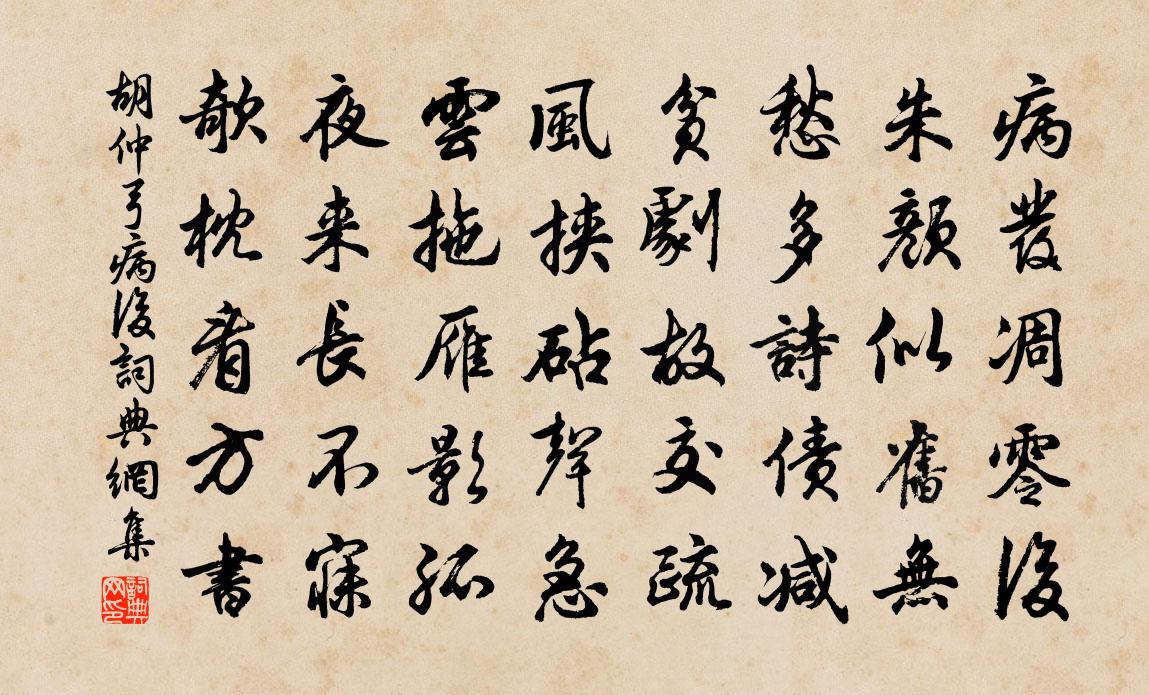 病發凋零後
朱顏似舊無
愁多詩債減
貧劇故交疏
風挾砧聲急
雲拖雁影孤
夜来長不寐
欹枕看方書
胡仲弓病後詞典網集
詞典网印